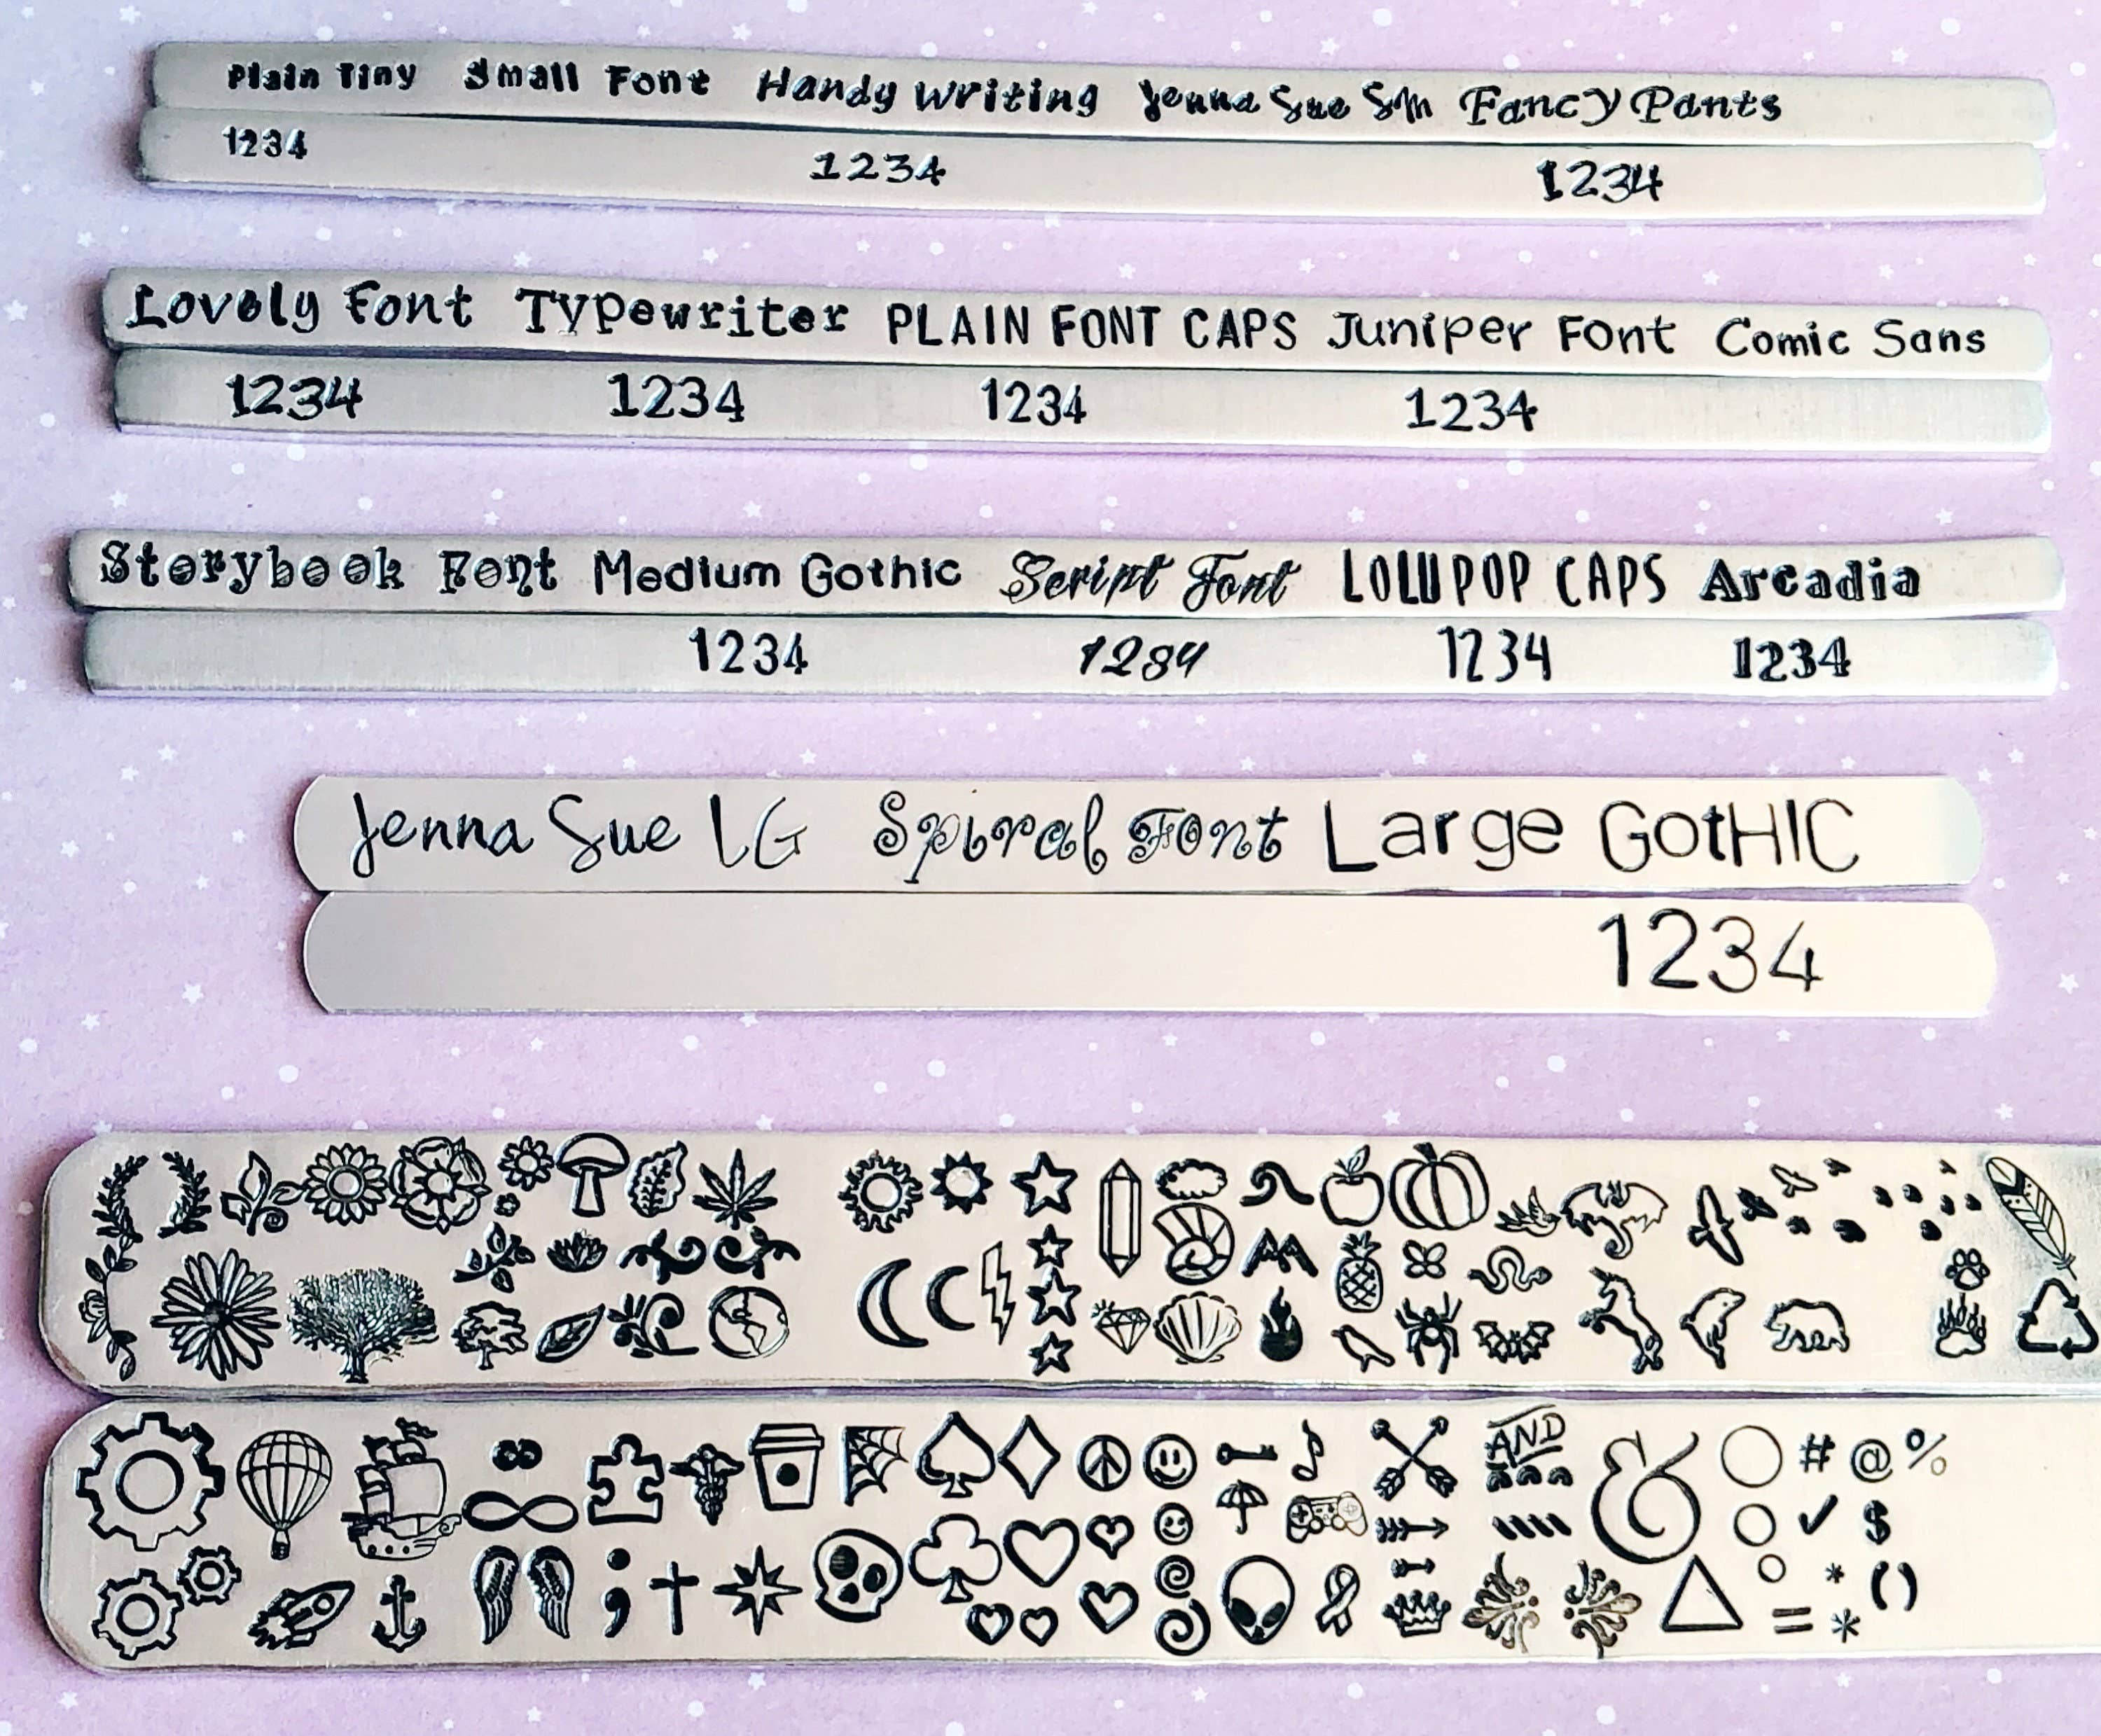 Plain Tiny Small Font Handy Writing Jenna Sue Sm Fancy Pants
1234 1234 1234
Lovely Font Typewriter PLAIN FONT CAPS Juniper Font Comic Sans
1234 1234 1234 1234
Storybook Font Medium Gothic Script Font LOLLIPOP CAPS Arcadia
1234 1234 1234 1234
Jenna Sue LG Spiral Font Large GotHIC
1234
AND & # @ %
$
; * ( )
= *